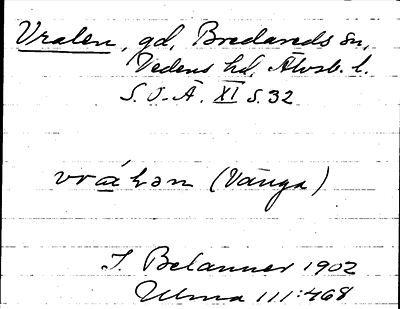 Vralen, gd, Bredareds sn,
Vedens hd, Älvsb. l.
S.O.Ä. XI S. 32
vrálən (Vånga)
J. Belanner 1902
Ulma 111:468